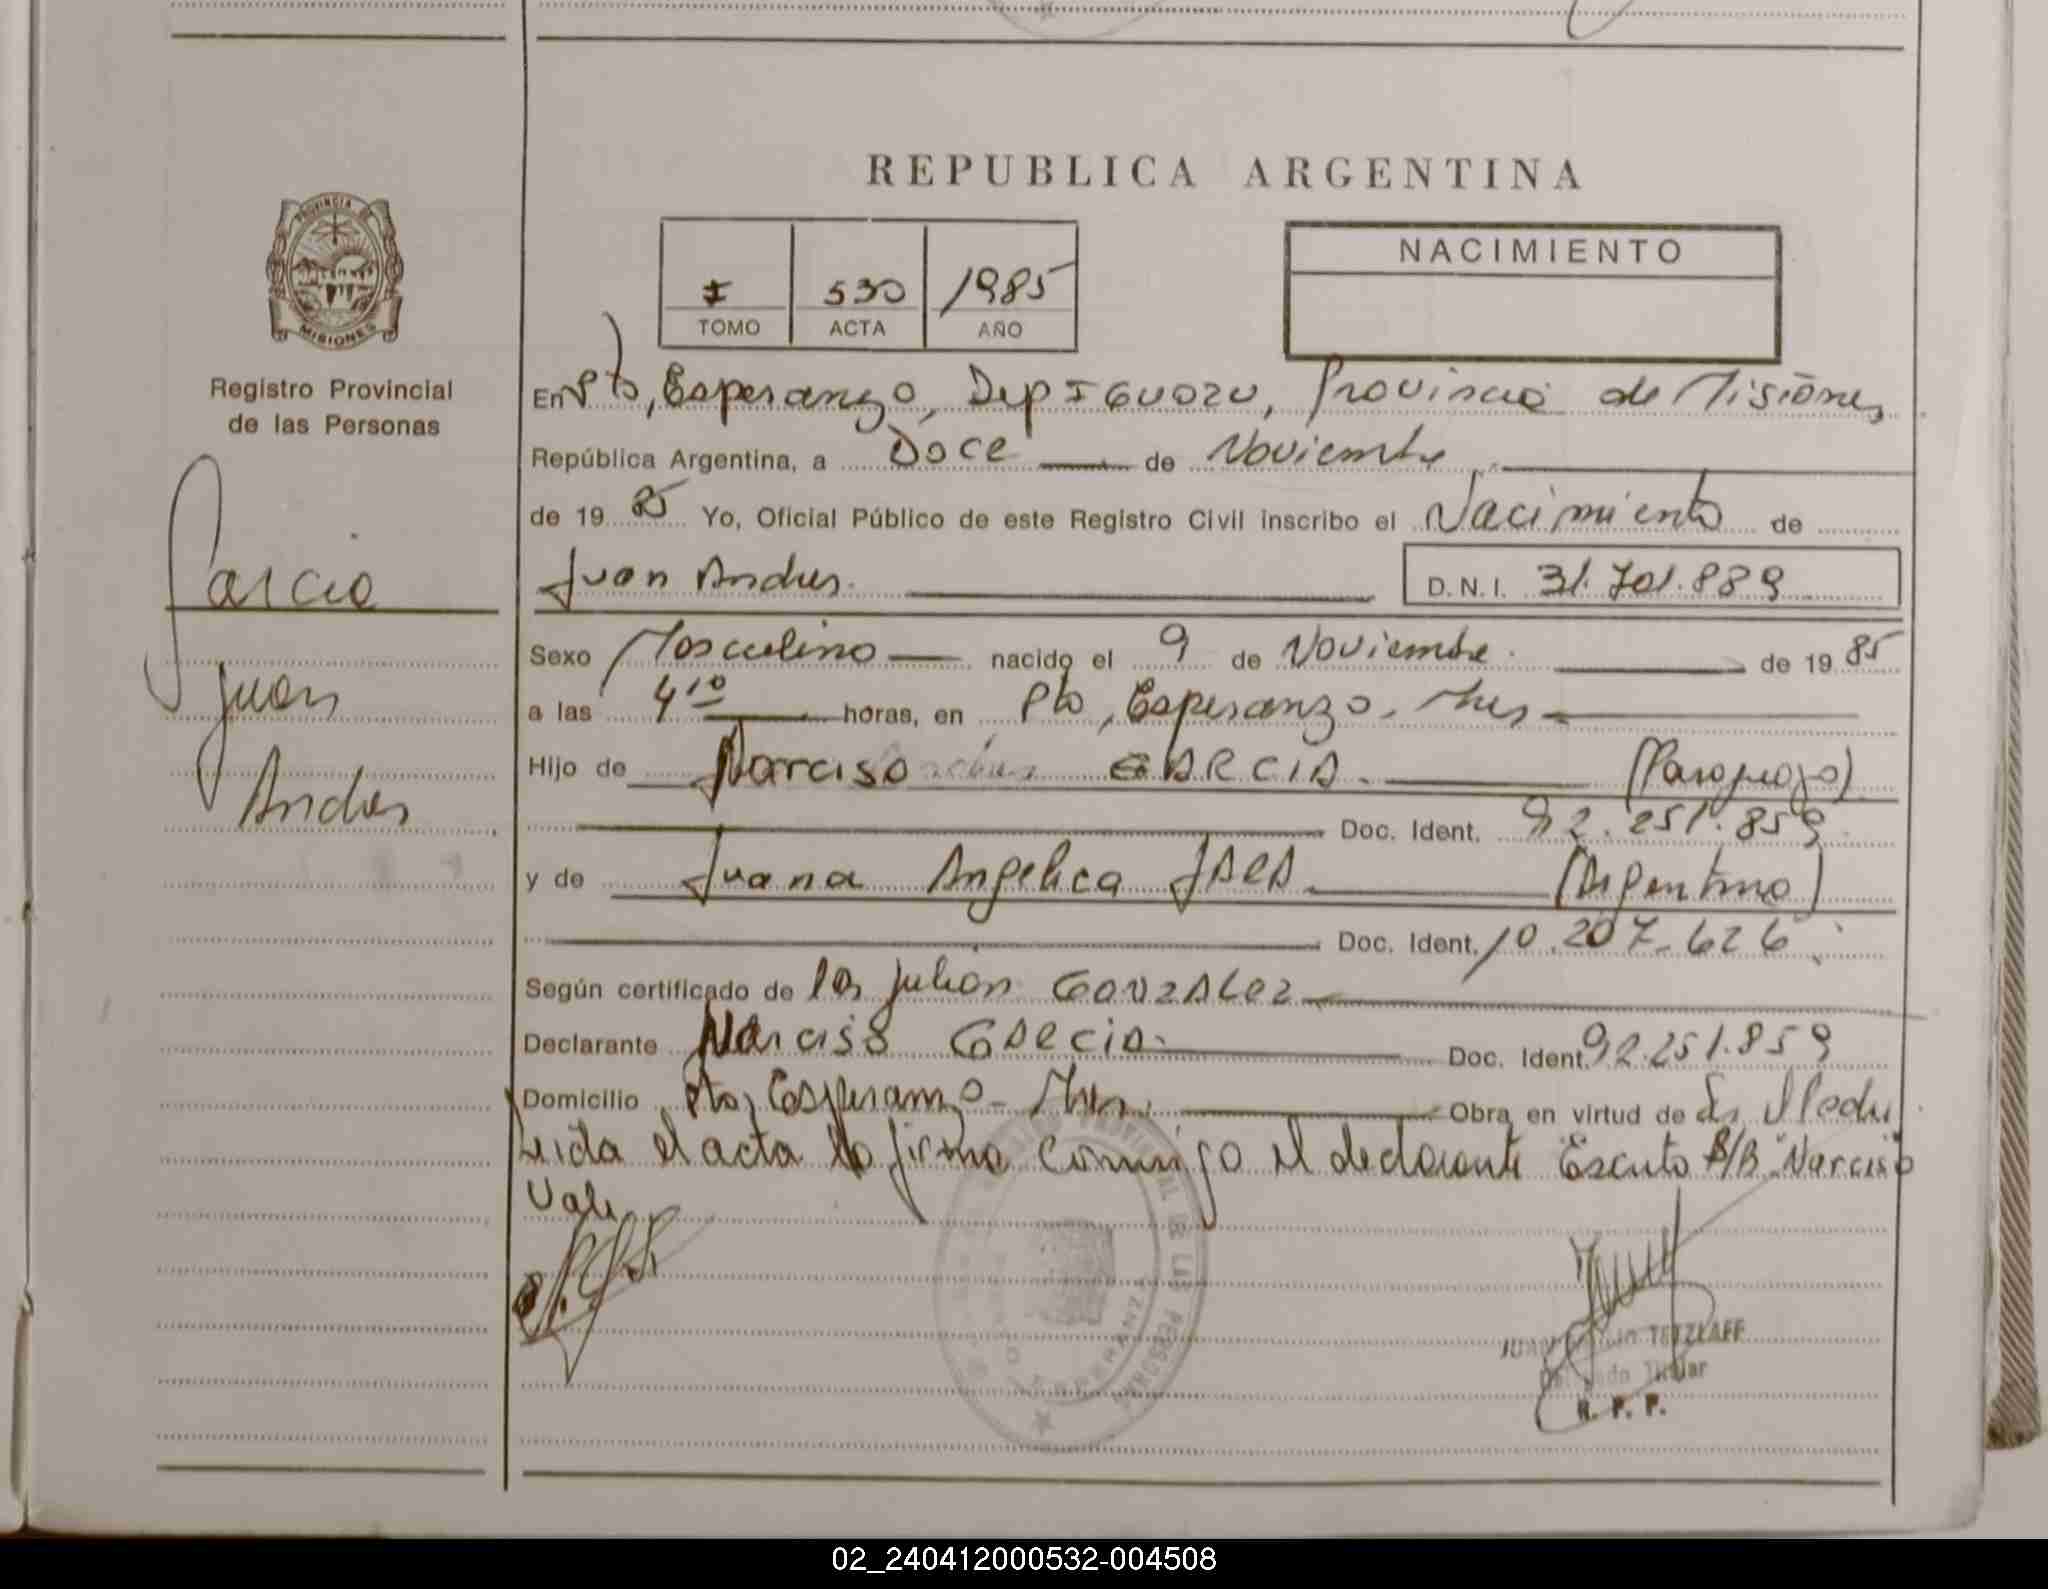 REPUBLICA ARGENTINA
PROVINCIA DE
MISIONES
Registro Provincial
de las Personas
I 530 1985
TOMO ACTA AÑO
NACIMIENTO
En Pto, Esperanza, Dep IGUAZU, Provincia de Misiones
República Argentina, a Doce de Noviembre
de 19 85 Yo, Oficial Público de este Registro Civil inscribo el Nacimiento de
Juan Andres. D.N.I. 31.701.889
Garcia
Juan
Andres
Sexo Masculino nacido el 9 de Noviembre de 19 85
a las 4 10 horas, en Pto, Esperanza - Mnes
Hijo de Narciso GARCIA. (Paraguayo)
Doc. Ident. 92.251.859
y de Juana Angelica JARA (Argentina)
Doc. Ident. 10.207.626
Según certificado de Julian GONZALEZ
Declarante Narciso GARCIA. Doc. Ident. 92.251.859
Domicilio Pto, Esperanza - Mnes. Obra en virtud de
Leida el acta la firma conmigo el declarante Escrito S/B "Narciso"
Vale
REGISTRO PROVINCIAL DE LAS PERSONAS
ESPERANZA
JUAN TETZLAFF
Delegado Titular
R. P. P.
02_240412000532-004508